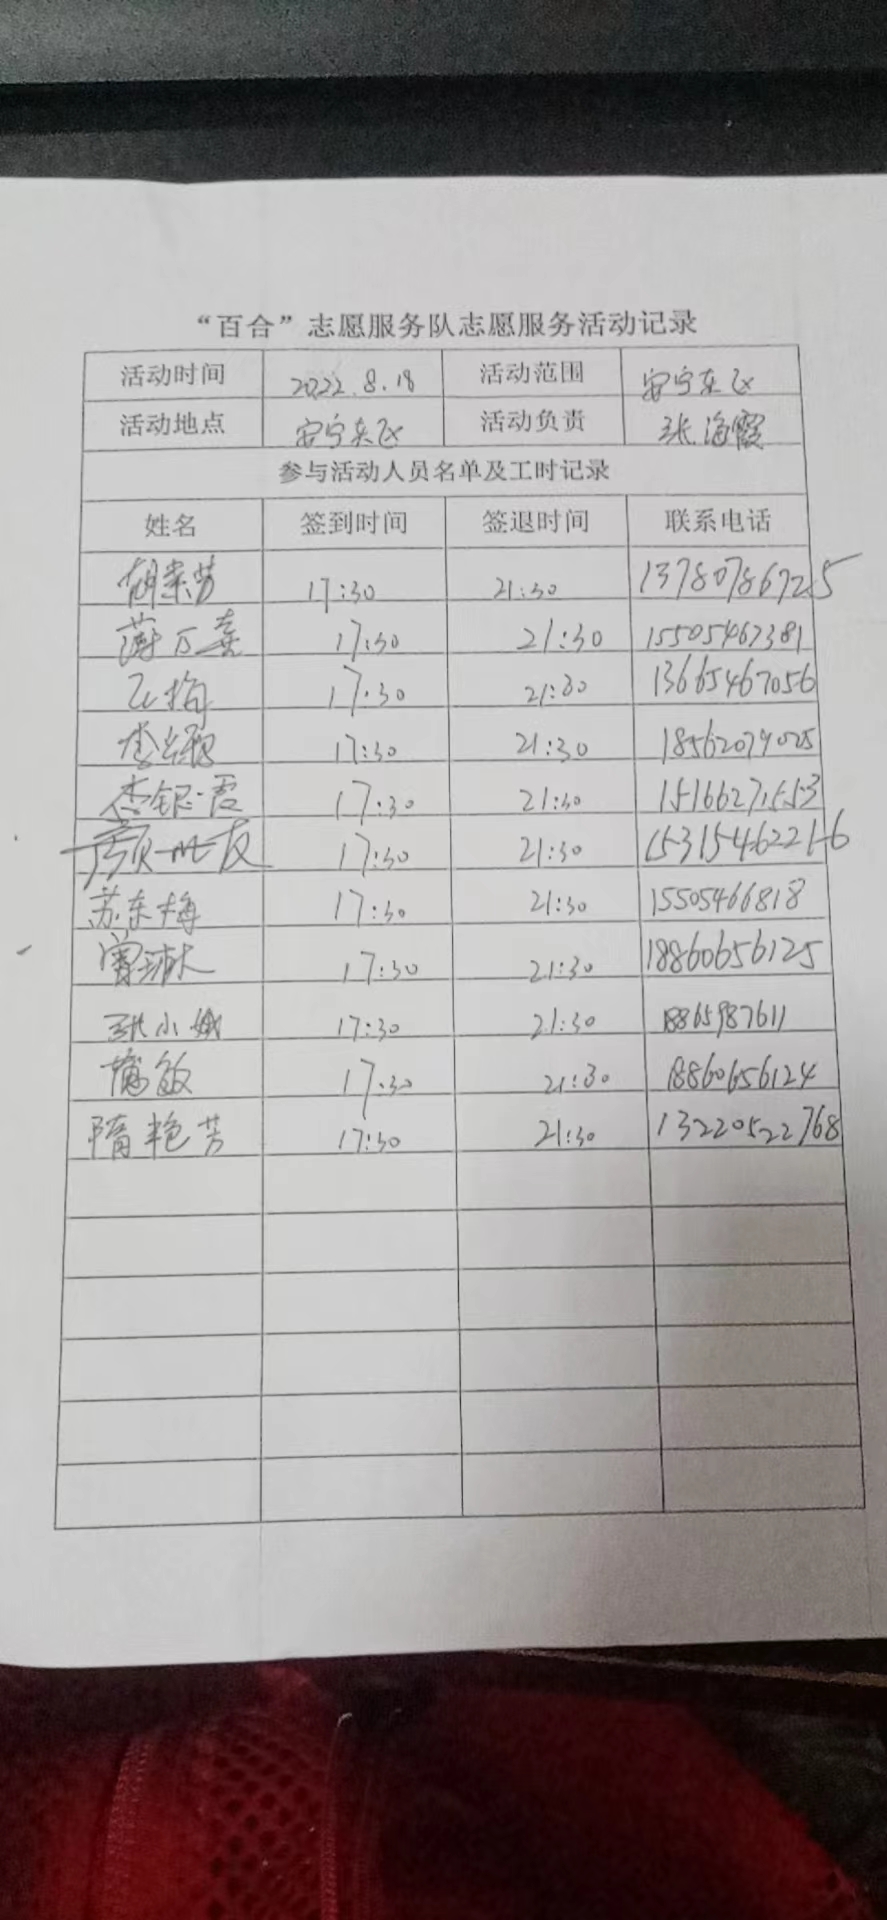 “百合”志愿服务队志愿服务活动记录
活动时间 2022.8.18 活动范围 安宁东区
活动地点 安宁东区 活动负责 张海霞
参与活动人员名单及工时记录
姓名 签到时间 签退时间 联系电话
胡素芳 17:30 21:30 13780786725
薄万喜 17:30 21:30 15505467381
17:30 21:30 13665467056
17:30 21:30 18562079025
李银霞 17:30 21:30 15166271553
17:30 21:30 15315462216
苏东梅 17:30 21:30 15505466818
曹琳 17:30 21:30 18860656125
张小娥 17:30 21:30 18865987611
敏 17:30 21:30 18860656124
隋艳芳 17:30 21:30 13220522768